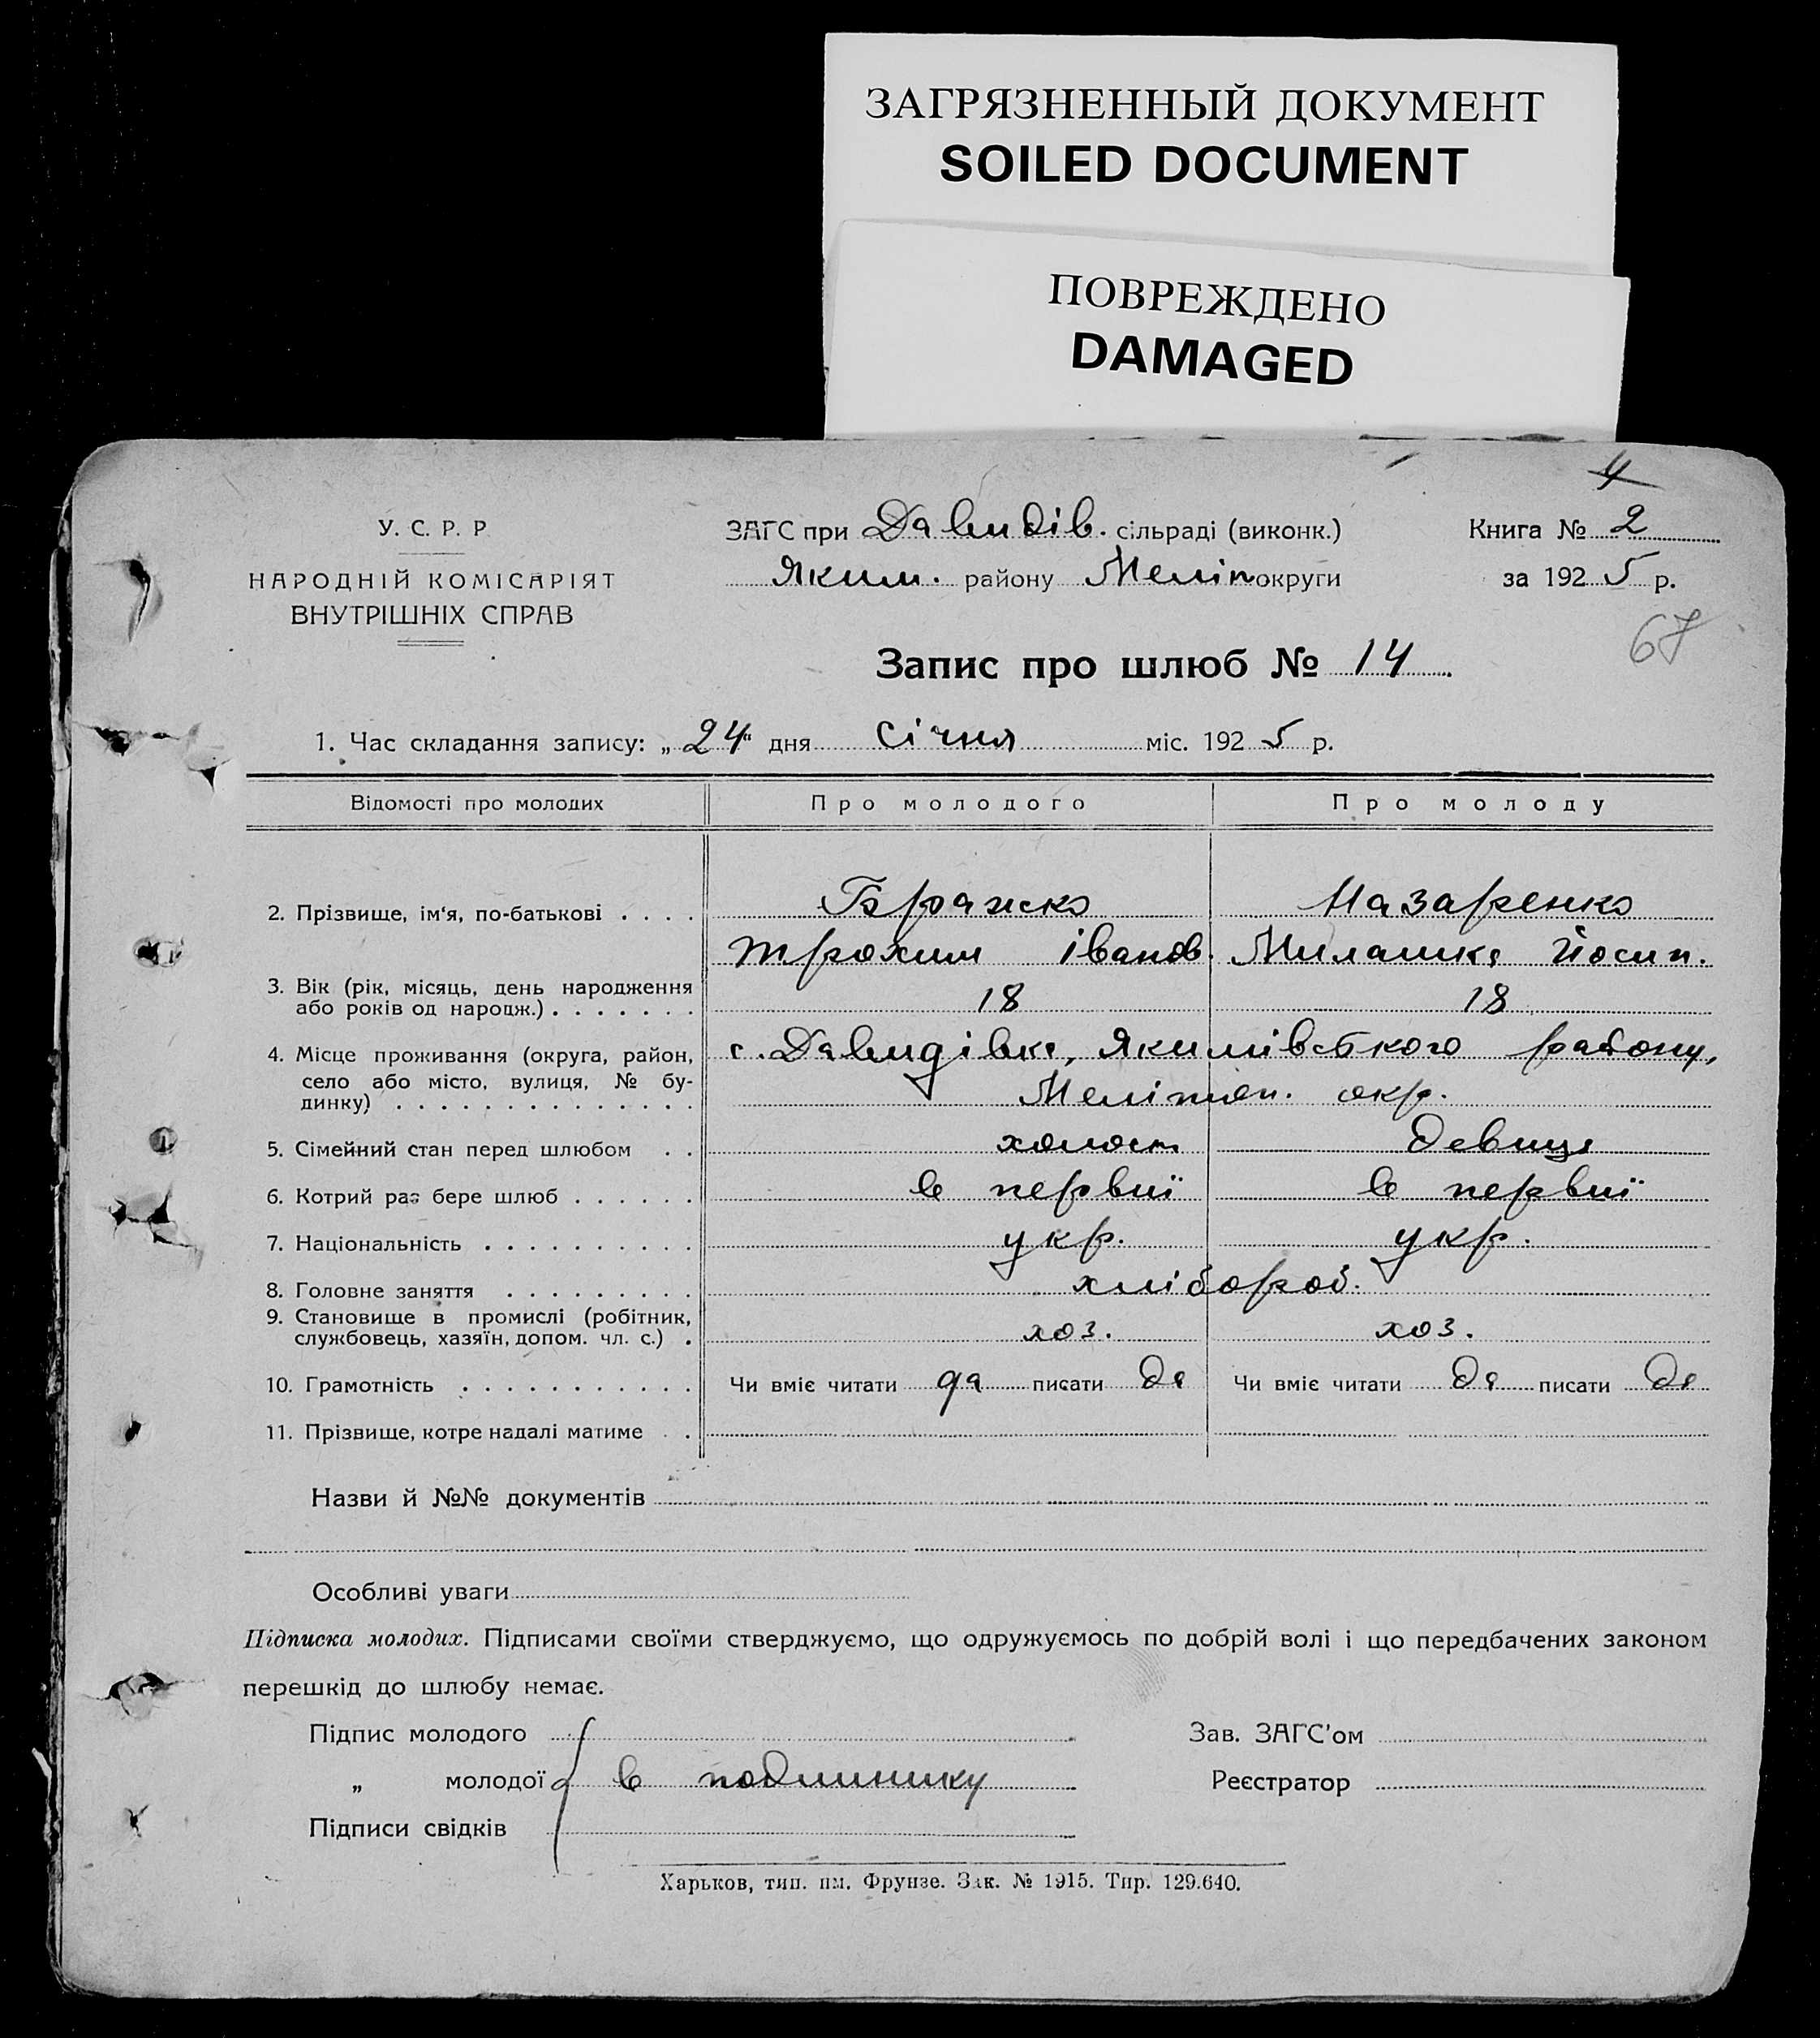 ЗАГРЯЗНЕННЫЙ ДОКУМЕНТ
SOILED DOCUMENT
ПОВРЕЖДЕНО
DAMAGED
4
У. С. Р. Р
НАРОДНІЙ КОМІСАРІЯТ
ВНУТРІШНІХ СПРАВ
ЗАГС при Давидів. сільраді (виконк.)
Яким. району Меліт округи
Книга № 2
за 192 5 р.
67
Запис про шлюб № 14
1. Час складання запису: „ 24 “ дня січня міс. 192 5 р.
Відомості про молодих Про молодого Про молоду
2. Прізвище, ім‘я, по-батькові . . . . Бражко Назаренко
Трохим Іванов. Миланка Йосип.
3. Вік (рік, місяць, день народження
або років од народж.) . . . . . . . 18 18
4. Місце проживання (округа, район, с. Давидівка, Якимівського району,
село або місто, вулиця, № бу-
динку) . . . . . . . . . . . . . . Мелітоп. окр.
5. Сімейний стан перед шлюбом . . холост девица
6. Котрий раз бере шлюб . . . . . . в первиї в первиї
7. Національність . . . . . . . . . . укр. укр.
8. Головне заняття . . . . . . . . . хлібороб.
9. Становище в промислі (робітник,
службовець, хазяїн, допом. чл. с.) . хоз. хоз.
10. Грамотність . . . . . . . . . . . Чи вміє читати да писати да Чи вміє читати да писати да
11. Прізвище, котре надалі матиме . .
Назви й №№ документів
Особливі уваги
Підписка молодих. Підписами своїми стверджуємо, що одружуємось по добрій волі і що передбачених законом
перешкід до шлюбу немає.
Підпис молодого Зав. ЗАГС’ом
„ молодої в подлиннику Реєстратор
Підписи свідків
Харьков, тип. им. Фрунзе. Зак. № 1915. Тир. 129.640.